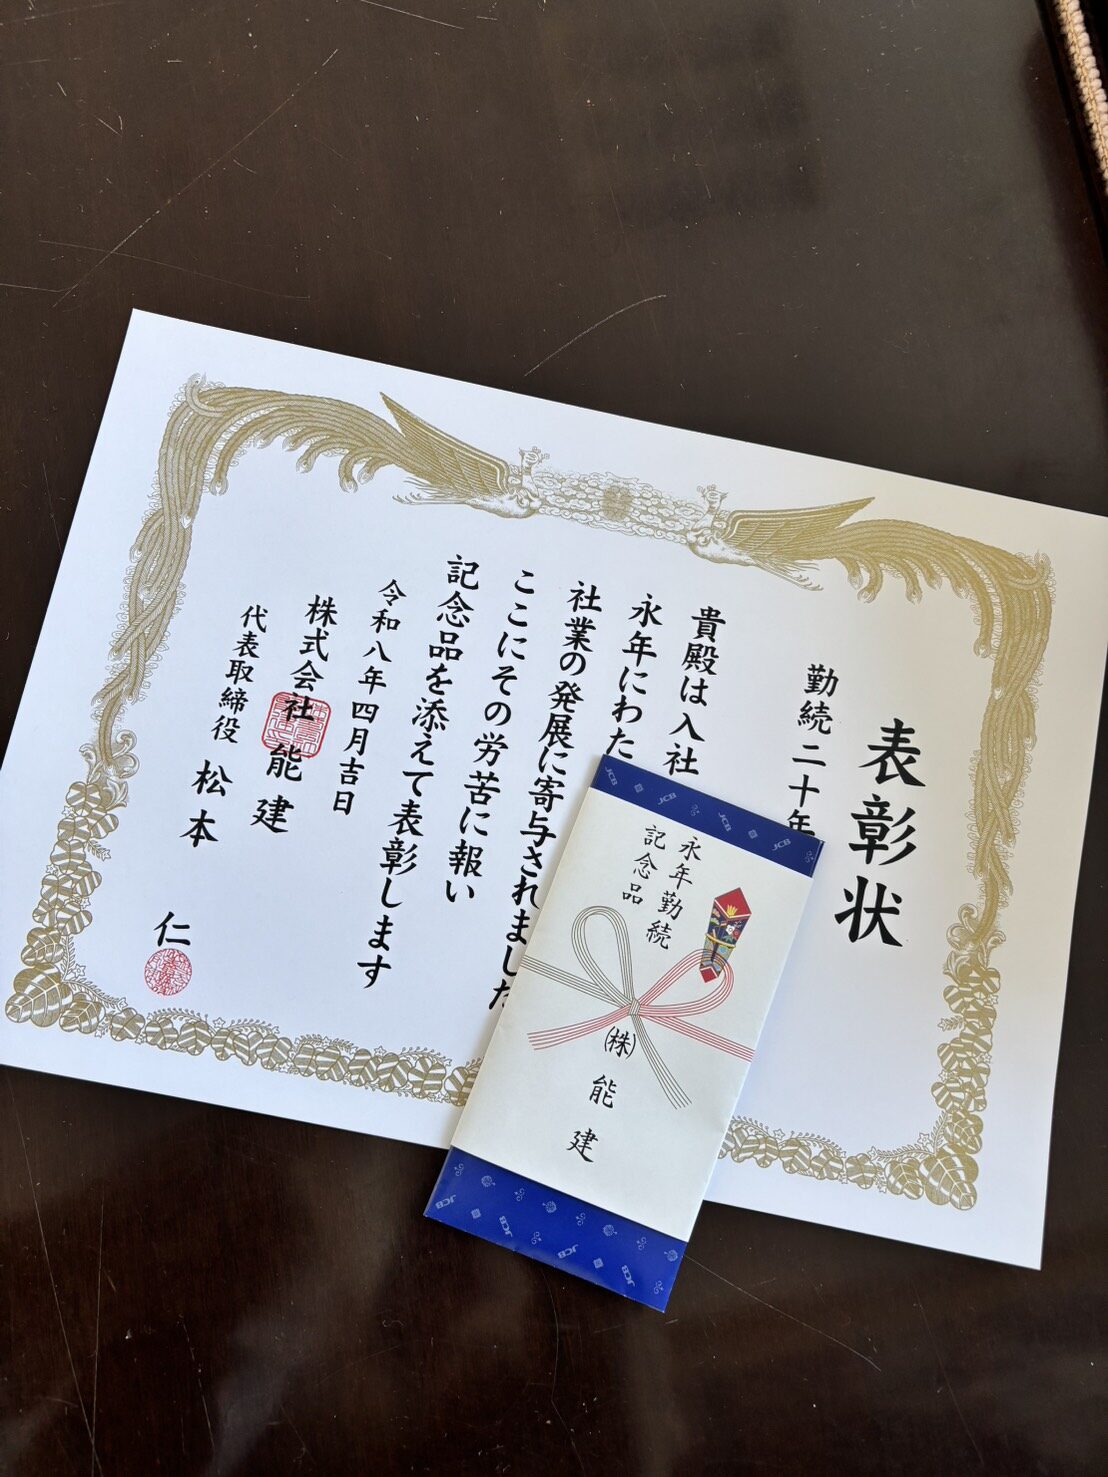 表彰状
勤続二十年
貴殿は入社
永年にわた
社業の発展に寄与されました
ここにその労苦に報い
記念品を添えて表彰します
令和八年四月吉日
株式会社 能建
代表取締役 松本 仁
永年勤続
記念品
(株) 能建
JCB
JCB
JCB
JCB
JCB
JCB
JCB